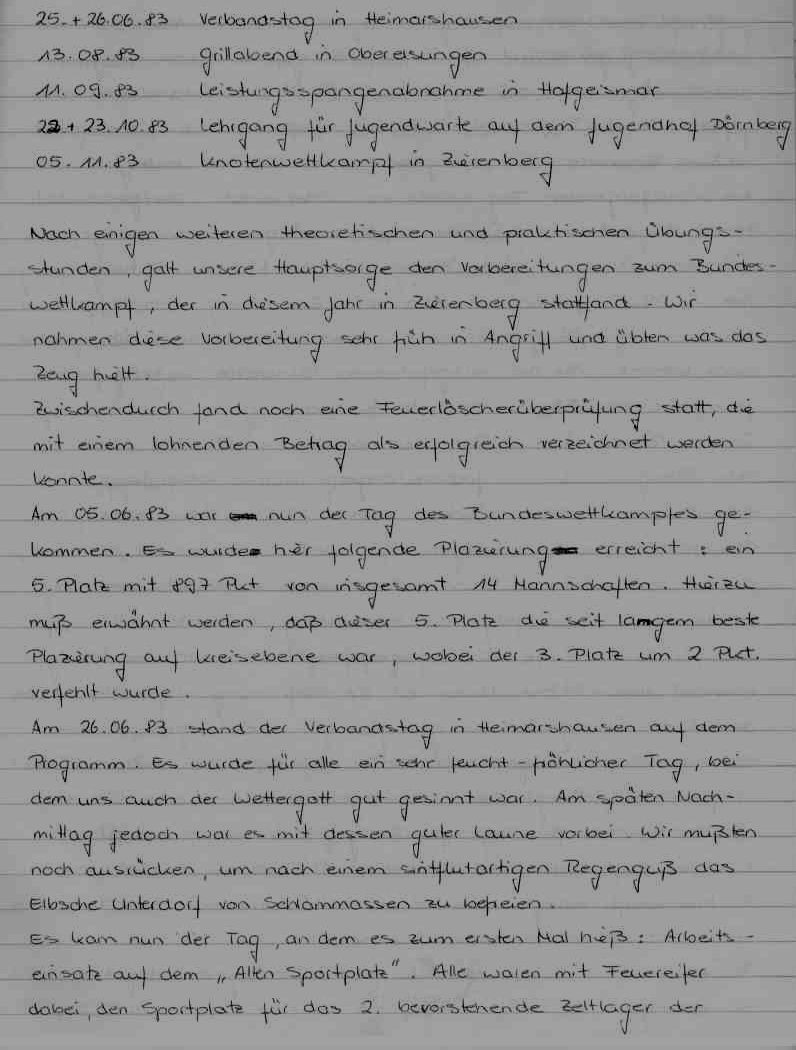 25. + 26.06.83 Verbandstag in Heimarshausen
13.08.83 Grillabend in Oberelsungen
11.09.83 Leistungsspangenabnahme in Hofgeismar
22 + 23.10.83 Lehrgang für Jugendwarte auf dem Jugendhof Dörnberg
05.11.83 Knotenwettkampf in Zierenberg
Nach einigen weiteren theoretischen und praktischen Übungs-
stunden, galt unsere Hauptsorge den Vorbereitungen zum Bundes-
wettkampf, der in diesem Jahr in Zierenberg stattfand. Wir
nahmen diese Vorbereitung sehr früh in Angriff und übten was das
Zeug hielt.
Zwischendurch fand noch eine Feuerlöscherüberprüfung statt, die
mit einem lohnenden Betrag als erfolgreich verzeichnet werden
konnte.
Am 05.06.83 war nun der Tag des Bundeswettkampfes ge-
kommen. Es wurde hier folgende Plazierung erreicht: ein
5. Platz mit 897 Pkt von insgesamt 14 Mannschaften. Hierzu
muß erwähnt werden, daß dieser 5. Platz die seit langem beste
Plazierung auf Kreisebene war, wobei der 3. Platz um 2 Pkt.
verfehlt wurde.
Am 26.06.83 stand der Verbandstag in Heimarshausen auf dem
Programm. Es wurde für alle ein sehr feucht-fröhlicher Tag, bei
dem uns auch der Wettergott gut gesinnt war. Am späten Nach-
mittag jedoch war es mit dessen guter Laune vorbei. Wir mußten
noch ausrücken, um nach einem sintflutartigen Regenguß das
Elbsche Unterdorf von Schlammassen zu befreien.
Es kam nun der Tag, an dem es zum ersten Mal hieß: Arbeits-
einsatz auf dem „Alten Sportplatz". Alle waren mit Feuereifer
dabei, den Sportplatz für das 2. bevorstehende Zeltlager der